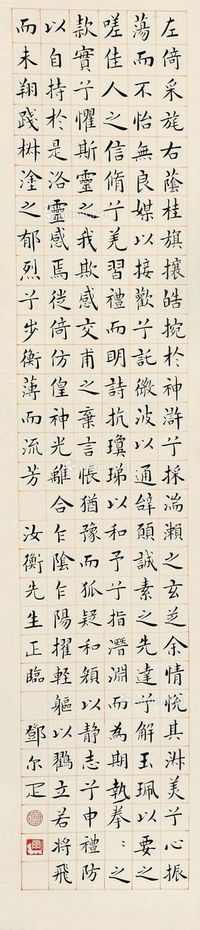 左倚采旄右蔭桂旗攘皓捥於神滸兮採湍瀨之玄芝余情悅其淑美兮心振
蕩而不怡無良媒以接歡兮託微波以通辭願誠素之先達兮解玉珮以要之
嗟佳人之信脩兮羌習禮而明詩抗瓊珶以和予兮指潛淵而為期執拳〻之
款實兮懼斯靈之我欺感交甫之棄言悵猶豫而狐疑和顏以静志兮申禮防
以自持於是洛靈感焉徙倚仿偟神光離合乍陰乍陽擢輕軀以鶴立若將飛
而未翔踐椒塗之郁烈兮步衡薄而流芳 汝衡先生正臨 鄧尔疋